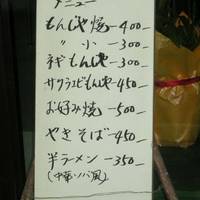 メニュー
もんじゃ焼-400-
〃 小-300-
ネギもんじゃ-300-
サクラエビもんじゃ-450-
お好み焼-500-
やきそば-450-
半ラーメン-350-
(中華ソバ風)